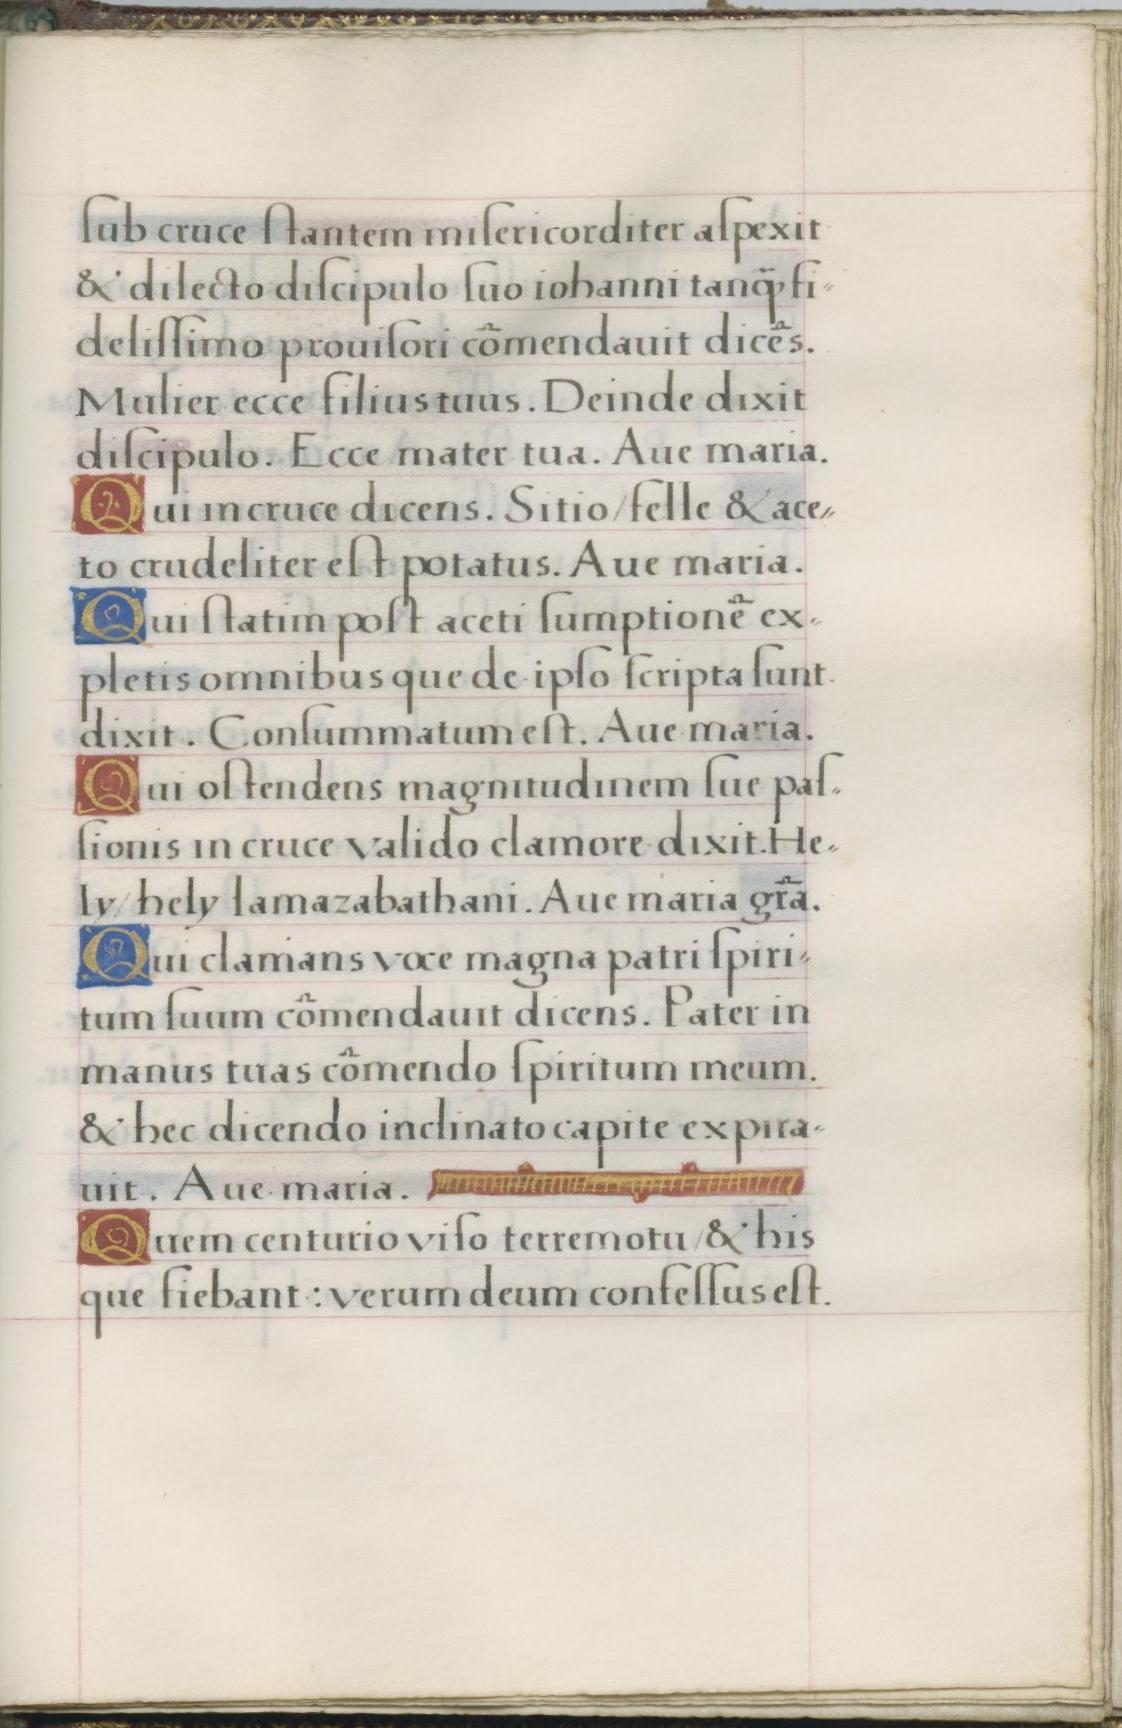 ſub cruce ſtantem miſericorditer aſpexit
& dilecto diſcipulo ſuo iohanni tanq̃ fi-
deliſſimo prouiſori cõmendauit dicẽs.
Mulier ecce filius tuus. Deinde dixit
diſcipulo. Ecce mater tua. Aue maria.
Qui in cruce dicens. Sitio/felle & ace-
to crudeliter eſt potatus. Aue maria.
Qui ſtatim poſt aceti ſumptionẽ ex-
pletis omnibus que de ipſo ſcripta ſunt
dixit. Conſummatum eſt. Aue maria.
Qui oſtendens magnitudinem ſue paſ-
ſionis in cruce valido clamore dixit. He-
ly/hely lamazabathani. Aue maria gr̃a.
Qui clamans voce magna patri ſpiri-
tum ſuum cõmendauit dicens. Pater in
manus tuas cõmendo ſpiritum meum.
& hec dicendo inclinato capite expira-
uit. Aue maria.
Quem centurio viſo terremotu/& his
que fiebant: verum deum confeſſus eſt.